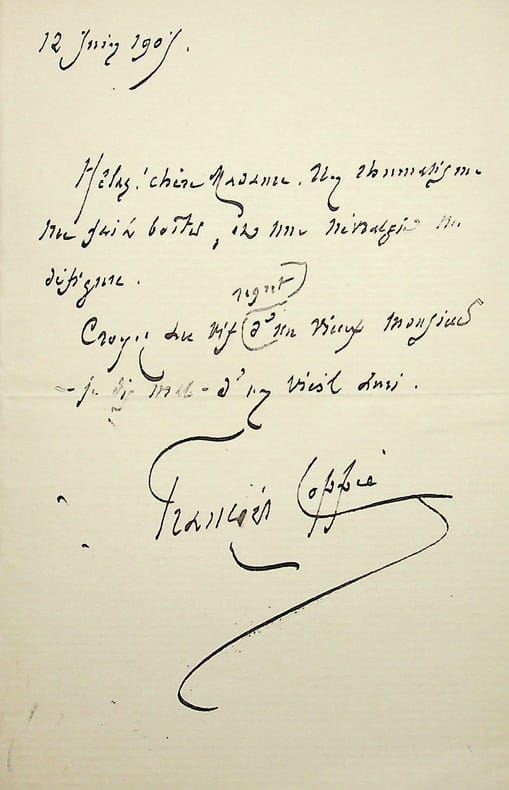 12 Juin 1905.
Hélas! chère Madame. Un rhumatisme
me fait boiter, et une névralgie me
défigure.
regret
Croyez au vif d'un vieux monsieur
– je dis mal – d'un vieil ami.
François Coppée